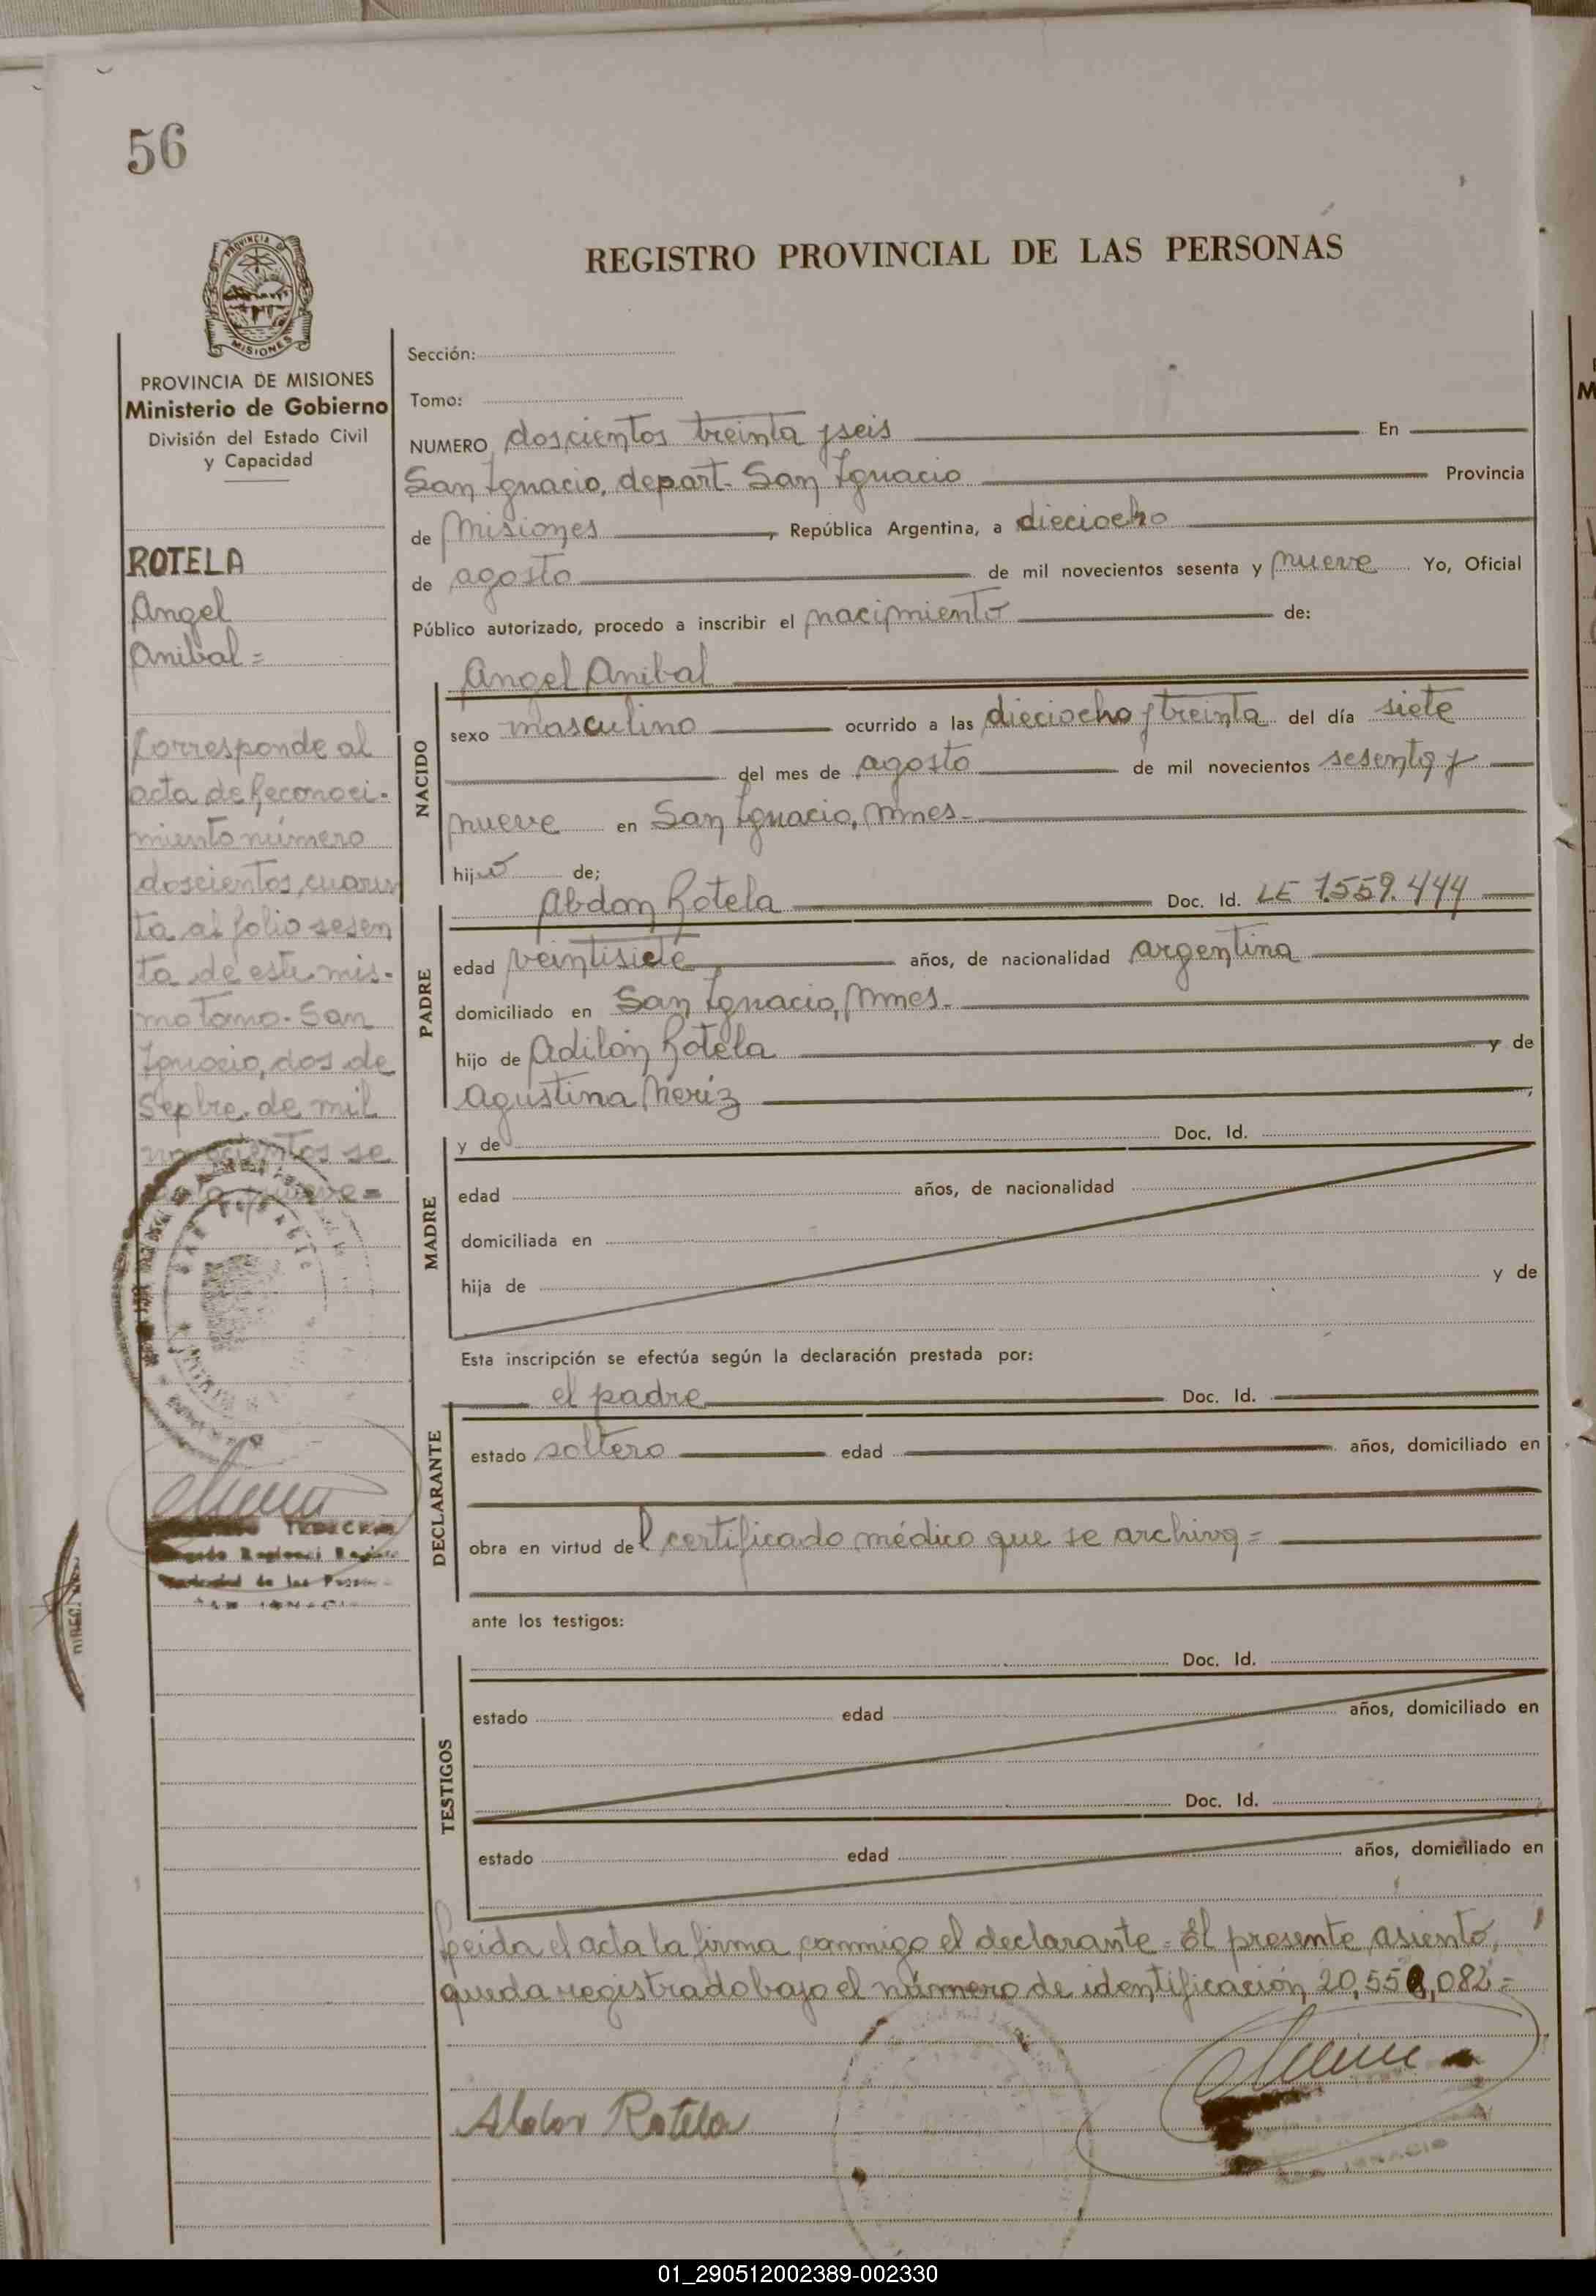 56
PROVINCIA DE
MISIONES
REGISTRO PROVINCIAL DE LAS PERSONAS
PROVINCIA DE MISIONES
Ministerio de Gobierno
División del Estado Civil
y Capacidad
ROTELA
Angel
Anibal =
Corresponde al
acta de Reconoci-
miento número
doscientos, cuaren
ta al folio sesen
ta de este mis-
mo tomo. San
Ignacio, dos de
Sepbre. de mil
novecientos se
nueve =
Sección:
Tomo:
NUMERO doscientos treinta y seis En
San Ignacio, depart. San Ignacio Provincia
de Misiones, República Argentina, a dieciocho
de agosto de mil novecientos sesenta y nueve Yo, Oficial
Público autorizado, procedo a inscribir el nacimiento de:
Angel Anibal
NACIDO
sexo masculino ocurrido a las dieciocho y treinta del día siete
del mes de agosto de mil novecientos sesenta y
nueve en San Ignacio, Mnes.
hijo de;
PADRE
Abdon Rotela Doc. Id. LE 7.559.444
edad veintisiete años, de nacionalidad argentina
domiciliado en San Ignacio, Mnes.
hijo de Adilón Rotela y de
Agustina Neriz
MADRE
y de Doc. Id.
edad años, de nacionalidad
domiciliada en
hija de y de
Esta inscripción se efectúa según la declaración prestada por:
DECLARANTE
el padre Doc. Id.
estado soltero edad años, domiciliado en
obra en virtud del certificado médico que se archiva =
ante los testigos:
TESTIGOS
Doc. Id.
estado edad años, domiciliado en
Doc. Id.
estado edad años, domiciliado en
Leida el acta la firma conmigo el declarante = El presente asiento,
queda registrado bajo el número de identificación 20,550,082 =
Abdon Rotela
SAN IGNACIO
01_290512002389-002330